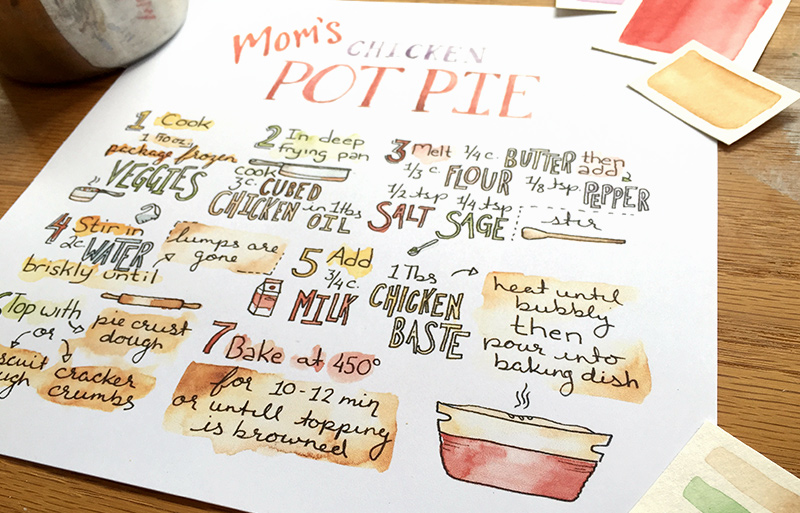 Mom's CHICKEN
POT PIE
1 Cook
1 10 oz.
package frozen
VEGGIES
2 In deep
frying pan
cook
3 c. CUBED
CHICKEN in 1 tbs
OIL
3 Melt 1/4 c. BUTTER then
add
1/3 c. FLOUR 1/8 tsp. PEPPER
1/2 tsp SALT 1/4 tsp SAGE
stir
4 Stir in
2c WATER
briskly until
lumps are
gone
5 Add
3/4 c.
MILK
1 Tbs
CHICKEN
BASTE
heat until
bubbly
then
pour into
baking dish
Top with
pie crust
dough
or
cracker
crumbs
7 Bake at 450°
for 10-12 min
or untill topping
is browned